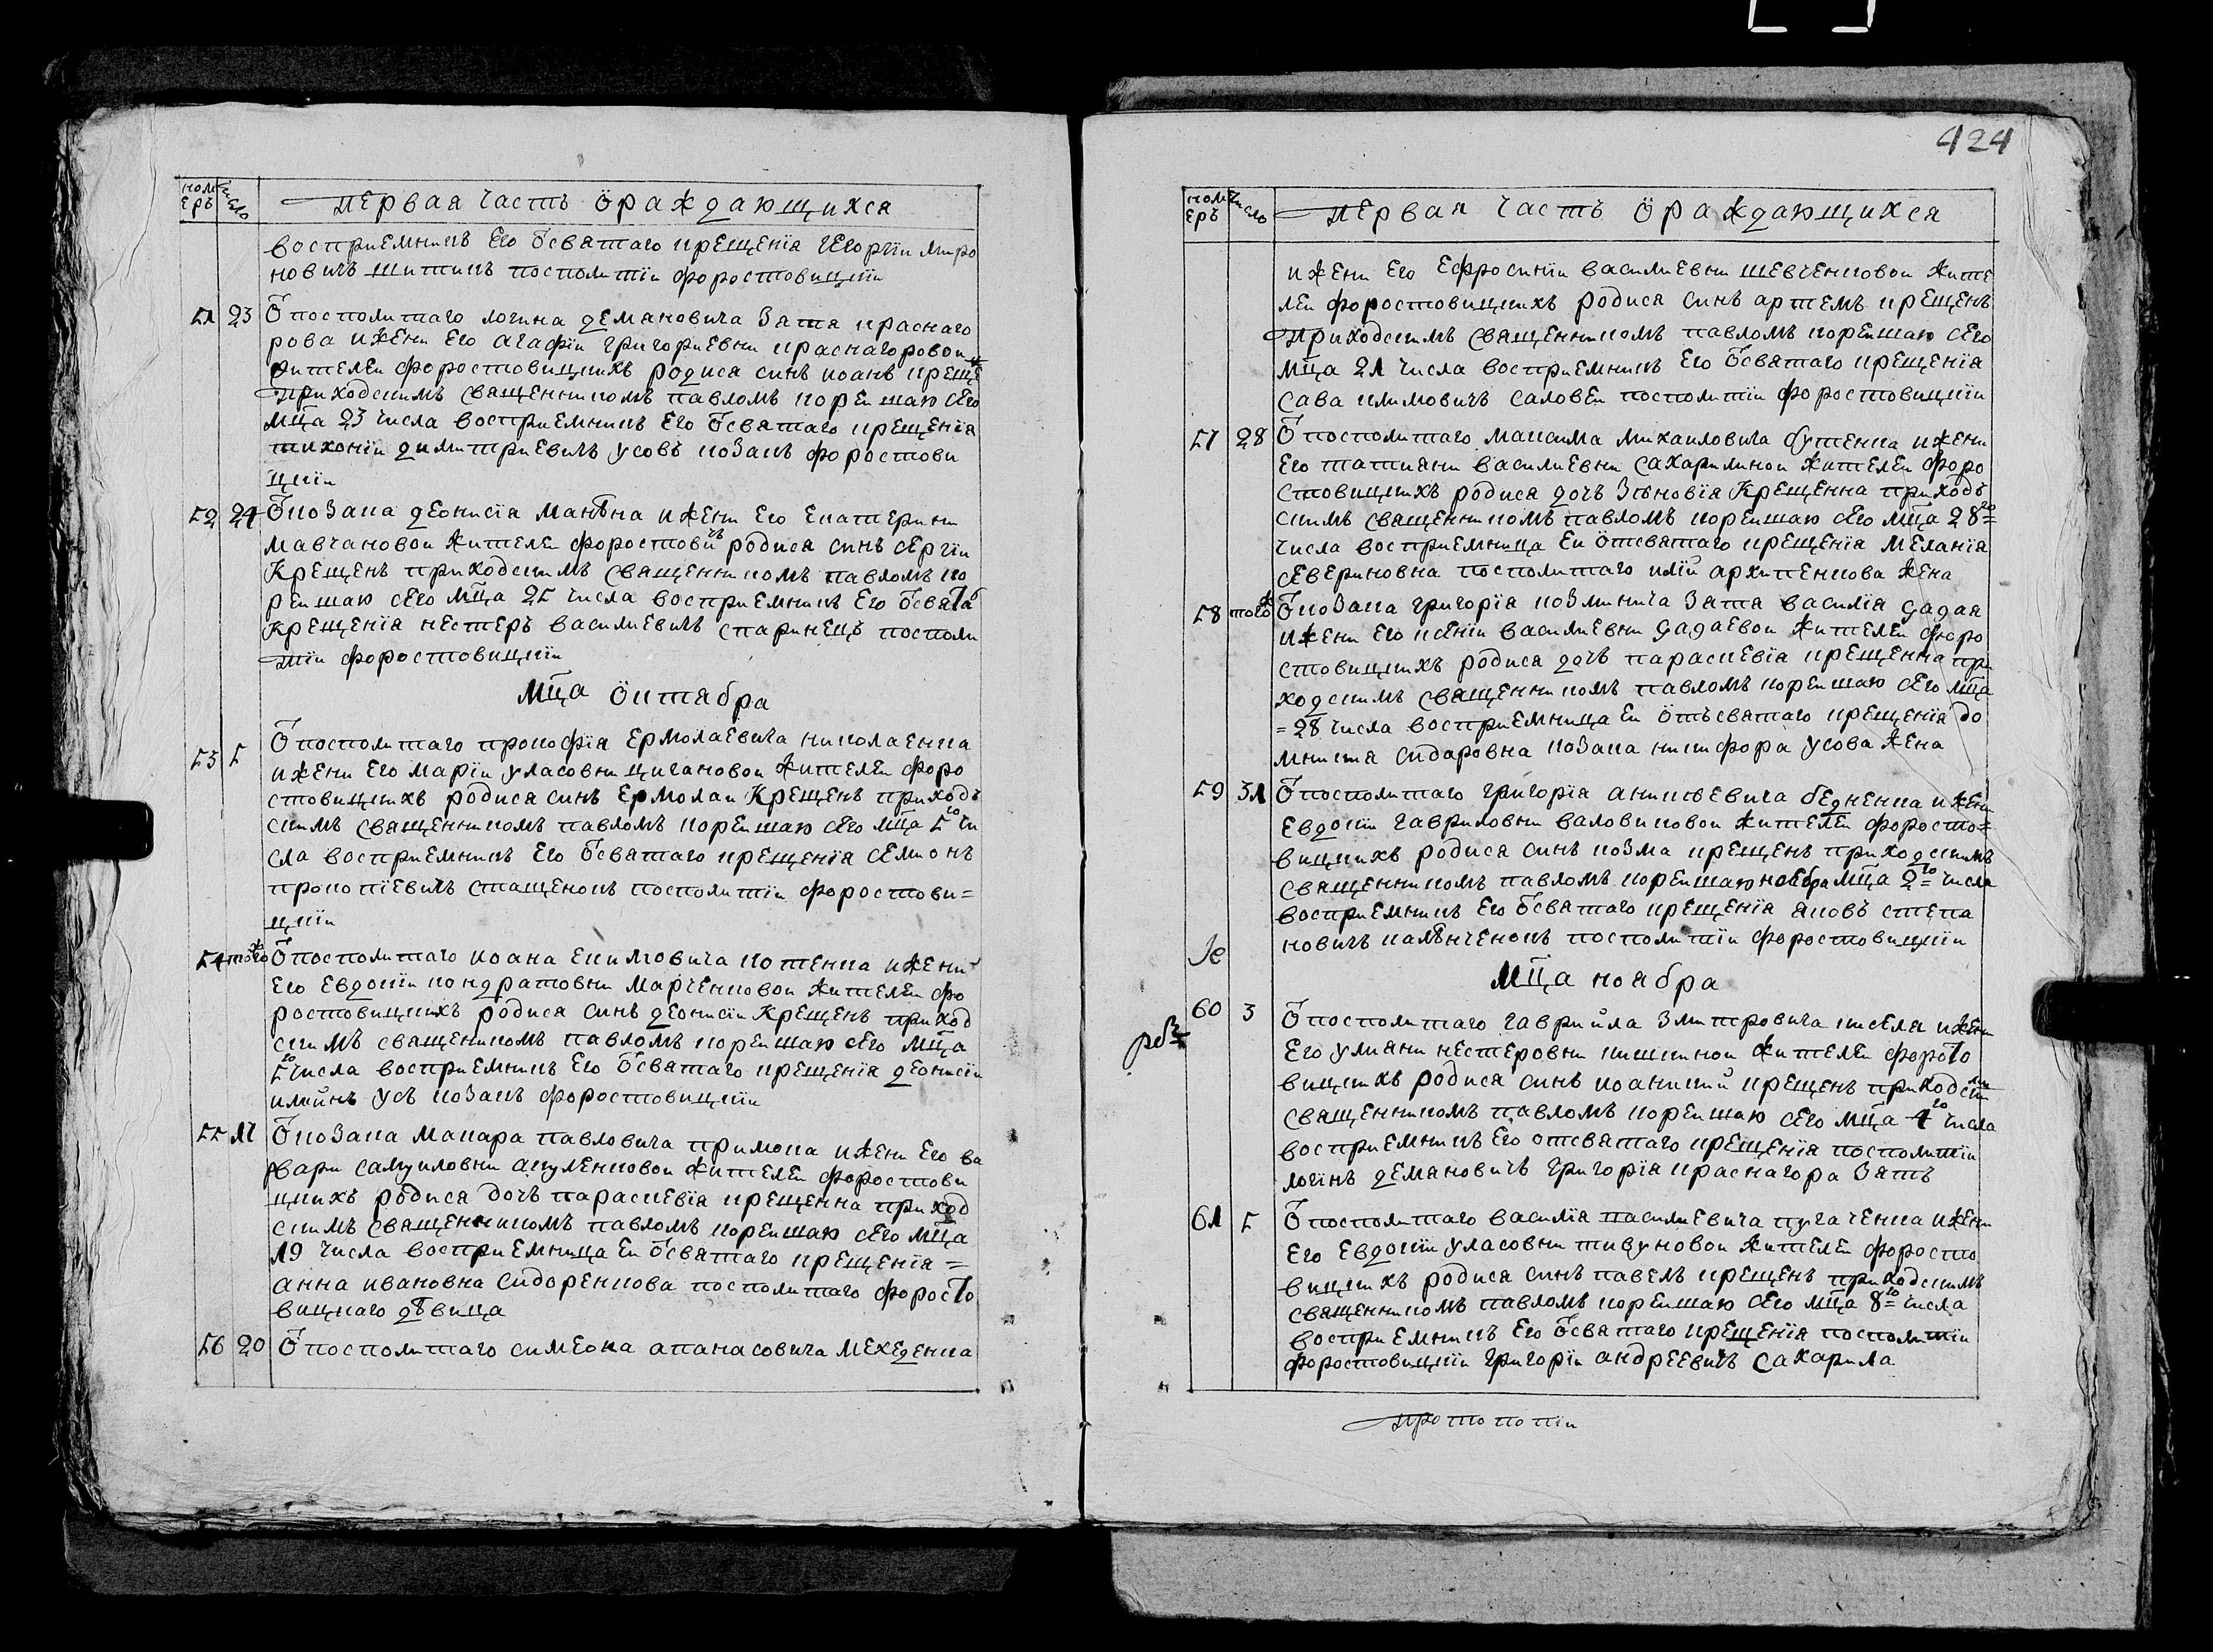 424
номеръ число первая часть ѿ раждающихся
восприемникъ его ѿ святаго крещенїя георгїи миро
новичъ шитикъ посполитїи форостовицкїи
51 23 Ѿ посполитаго логина демановича зятя краснаго
рова и жени его агафїи григориевни краснагоровои
жителеи форостовицкихъ родися синъ иоанъ креще
приходскимъ священникомъ павломъ корейшаю сего
мца 23 числа восприемникъ его ѿ святаго крещенїя
тихонїи димитриевичъ усовъ козакъ форостови
цкїи
52 24 Ѿ козака деонисїя мавѣна и жени его екатерини
мавчановои жителеи форостовицъ родися синъ сергїи
крещенъ приходскимъ священникомъ павломъ ко
реишаю сего мца 25 числа восприемникъ его ѿ святаг
крещенїя нестеръ василиевичъ скаринецъ посполи
тїи форостовицкїи
Мца ѿктября
53 5 Ѿ посполитаго прокофїя ермолаевича николаенка
и жени его марїи уласовни цигановои жителеи форо
стовицкихъ родися синъ ермолаи крещенъ приходъ
скимъ священникомъ павломъ кореишаю сего мца 5го чи
сла восприемникъ его ѿ святаго крещенїя семионъ
прокопїевичъ стащенокъ посполитїи форостови=
цкїи
54 тогож Ѿ посполитаго иоана екимовича котенка и жени
его евдокїи кондратовни марченковои жителеи фо
ростовицкихъ родися синъ деонисїи крещенъ приход
скимъ священикомъ павломъ кореишаю сего мца
5го числа восприемникъ его ѿ святаго крещенїя деонисїи
климинъ усъ козакъ форостовицкїи
55 17 Ѿ козака макара павловича примока и жени его ва
рвари самуиловни акуленковои жителеи форостови
цкихъ родися дочъ параскевїя крещенна приход
скимъ священникомъ павломъ кореишаю сего мца
19 числа восприемница еи ѿ святаго крещенїя =
анна ивановна сидоренкова посполитаго форосто
вицкаго дѣвица
56 20 Ѿ посполитаго симеона апанасовича мехеденка
номеръ число первая часть ѿ раждающихся
и жени его ефросинїи василиевни шевченковои жите
леи форостовицкихъ родися синъ артемъ крещенъ
приходскимъ священникомъ павломъ кореишаю сего
мца 21 числа восприемникъ его ѿ святаго крещенїя
сава климовичъ саловеи посполитїи форостовицкїи
57 28 Ѿ посполитаго максима михаиловича бутенка и жени
его татияни василиевни сахарилинои жителеи форо
стовицкихъ родися дочъ зѣновїя крещенна приходъ
скимъ священникомъ павломъ кореишаю сего мца 28го=
числа восприемница еи ѿтсвятаго крещенїя меланїя
севериновна посполитаго илїи архипенкова жена
58 тогож Ѿ козака григорїя козминича зятя василїя дадая
и жени его ксенїи василиевни дадаевои жителеи форо
стовицкихъ родися дочъ параскевїя крещенна при
ходскимъ священникомъ павломъ кореишаю сего мца
=28 числа восприемница еи ѿтъсвятаго крещенїя до
мникия сидаровна козака никифора усова жена
59 31 Ѿ посполитаго григорїя аникѣевича бедненка и жени
евдокїи гавриловни валовиковои жителеи форосто=
вицкихъ родися синъ козма крещенъ приходскимъ
священникомъ павломъ кореишаю ноебра мца 2го= числа
восприемникъ его ѿ святаго крещенїя яковъ степа
новичъ калѣнченокъ посполитїи форостовицкїи
Мца ноября
60 3 Ѿ посполитаго гаврийла змитровича киселя и жени
его улияни нестеровни кишкинои жителеи форосто
вицкихъ родися синъ иоаникий крещенъ приходским
священникомъ павломъ кореишаю сего мца 4го числа
восприемникъ его отсвятаго крещенїя посполитїи
логїнъ демановичъ григорїя краснагора зять
61 5 Ѿ посполитаго василїя василиевича пугаченка и жени
его евдокїи уласовни тивуновои жителеи форосто
вицкихъ родися синъ павелъ крещенъ приходскимъ
священникомъ павломъ кореишаю сего мца 8го= числа
восприемникъ его ѿ святаго крещенїя посполитїи
форостовицкїи григорїи андреевичъ сахарила
протопопїи